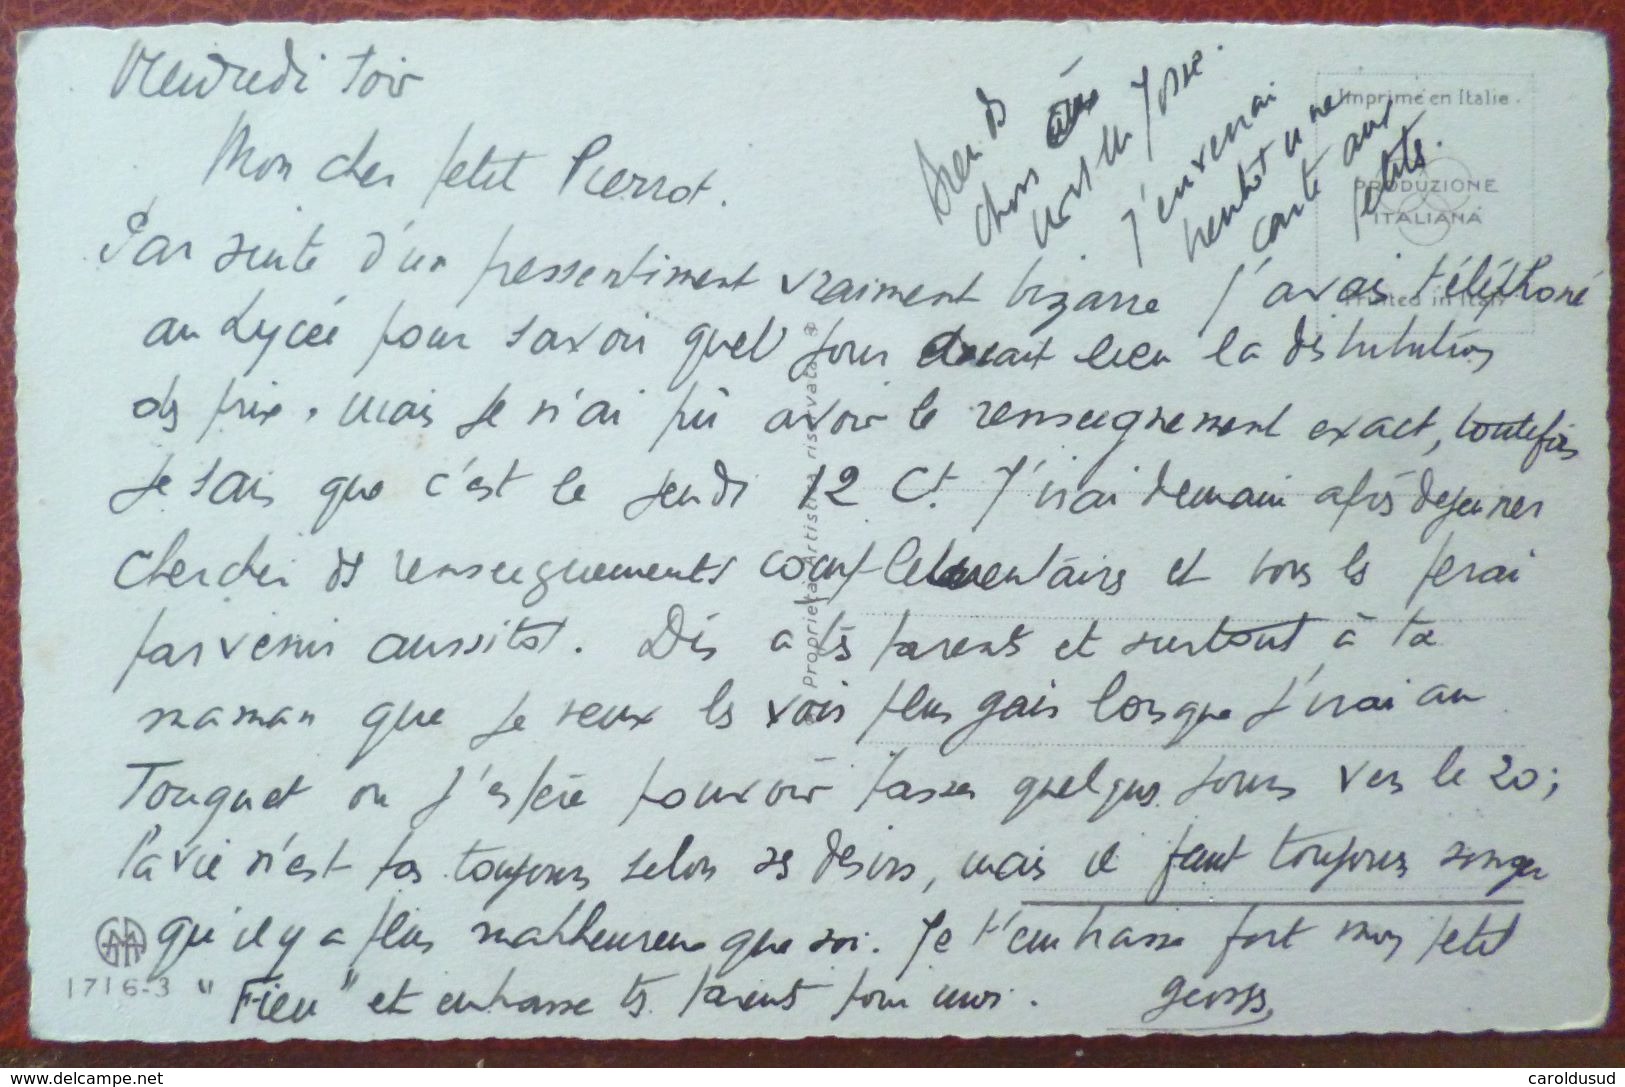 Vendredi soir
Mon cher petit Pierrot.
Par suite d'un pressentiment vraiment bizarre j'avais téléphoné
au Lycée pour savoir quel jour devait lieu la distribution
des prix, mais je n'ai pû avoir le renseignement exact, toutefois
je sais que c'est le jeudi 12 Ct. J'irai demain après déjeuner
chercher des renseignements complémentaires et vous les ferai
parvenir aussitôt. Dis à tes parents et surtout à ta
maman que je veux les voir plus gais lorsque j'irai au
Touquet où j'espère pouvoir passer quelques jours vers le 20;
la vie n'est pas toujours selon ses désirs, mais il faut toujours songer
qu'il y a plus malheureux que soi. Je t'embrasse fort mon petit
"Fieu" et embrasse tes parents pour moi. Georges
J'enverrai
bientôt une
carte aux
petits.
Imprimé en Italie
PRODUZIONE
ITALIANA
Printed in Italy
Proprietà Artistica riservata
1716-3
https://www.delcampe.net
caroldusud